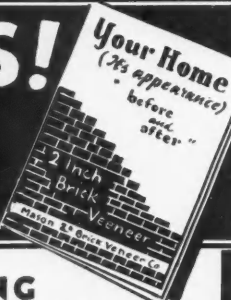 S!
Your Home
(Its appearance)
"before
and
after"
2 Inch
Brick
Veeneer
Mason 2" Brick Veneer Co
NG